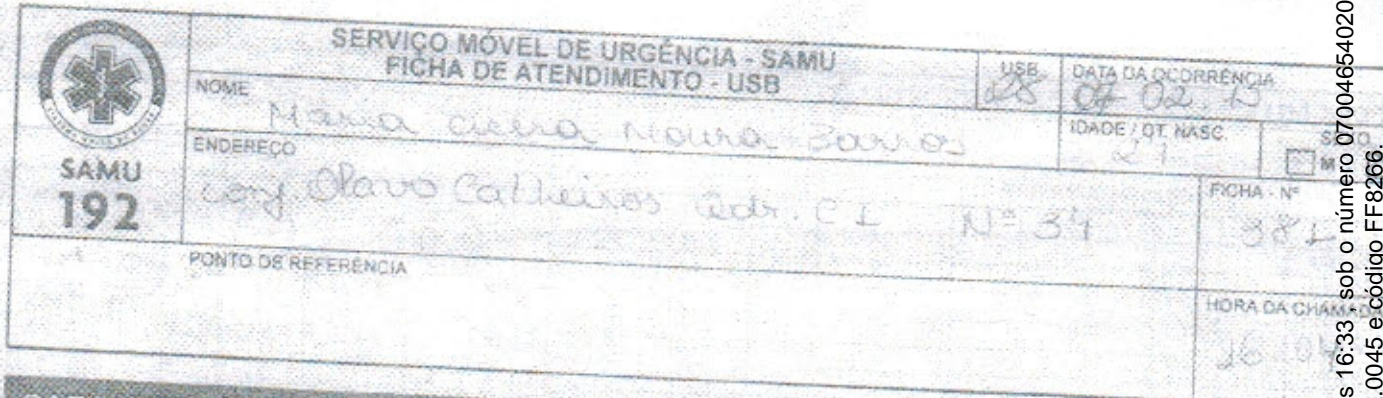 SERVIÇO MÓVEL DE URGÊNCIA - SAMU
FICHA DE ATENDIMENTO - USB
USB
DATA DA OCORRÊNCIA
07 02.
NOME
Maria Cicera Moura Barros
IDADE / DT. NASC.
27
SEXO
M
SAMU
192
ENDEREÇO
conj. Olavo Calheiros Qdr. C
FICHA - Nº
PONTO DE REFERÊNCIA
HORA DA CHAMADA
s 16:33 sob o número 07004654020
.0045 e código FF8266.